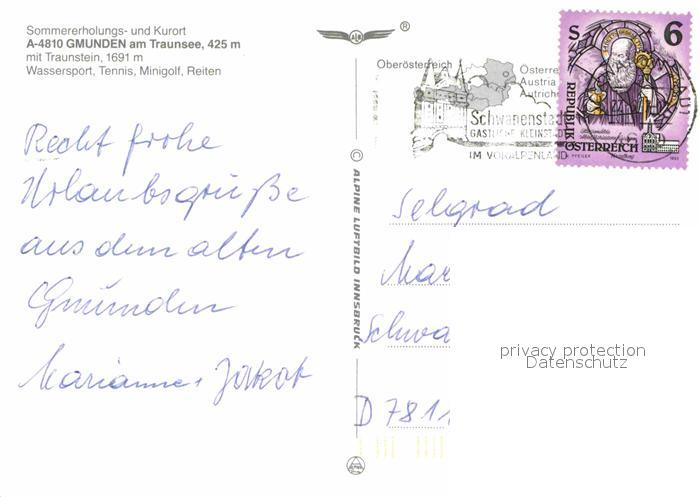 Sommererholungs- und Kurort
A-4810 GMUNDEN am Traunsee, 425 m
mit Traunstein, 1691 m
Wassersport, Tennis, Minigolf, Reiten
Recht frohe
Urlaubsgrüße
aus dem alten
Gmunden
Marianne + Jakob
© ALPINE LUFTBILD INNSBRUCK
®
Oberösterreich
Österre
Austria
Autriche
Schwanenstad
GASTLICHE KLEINSTAD
IM VORALPENLAND
S 6
REPUBLIK
ÖSTERREICH
1993
Selgrad
Mar
Schwa
D 7811
privacy protection
Datenschutz